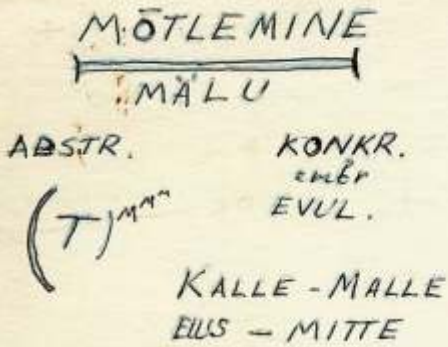 MÕTLEMINE
MÄLU
ABSTR. KONKR.
EVUL.
(T)ᵐᵐᵐ
KALLE - MALLE
ELUS - MITTE